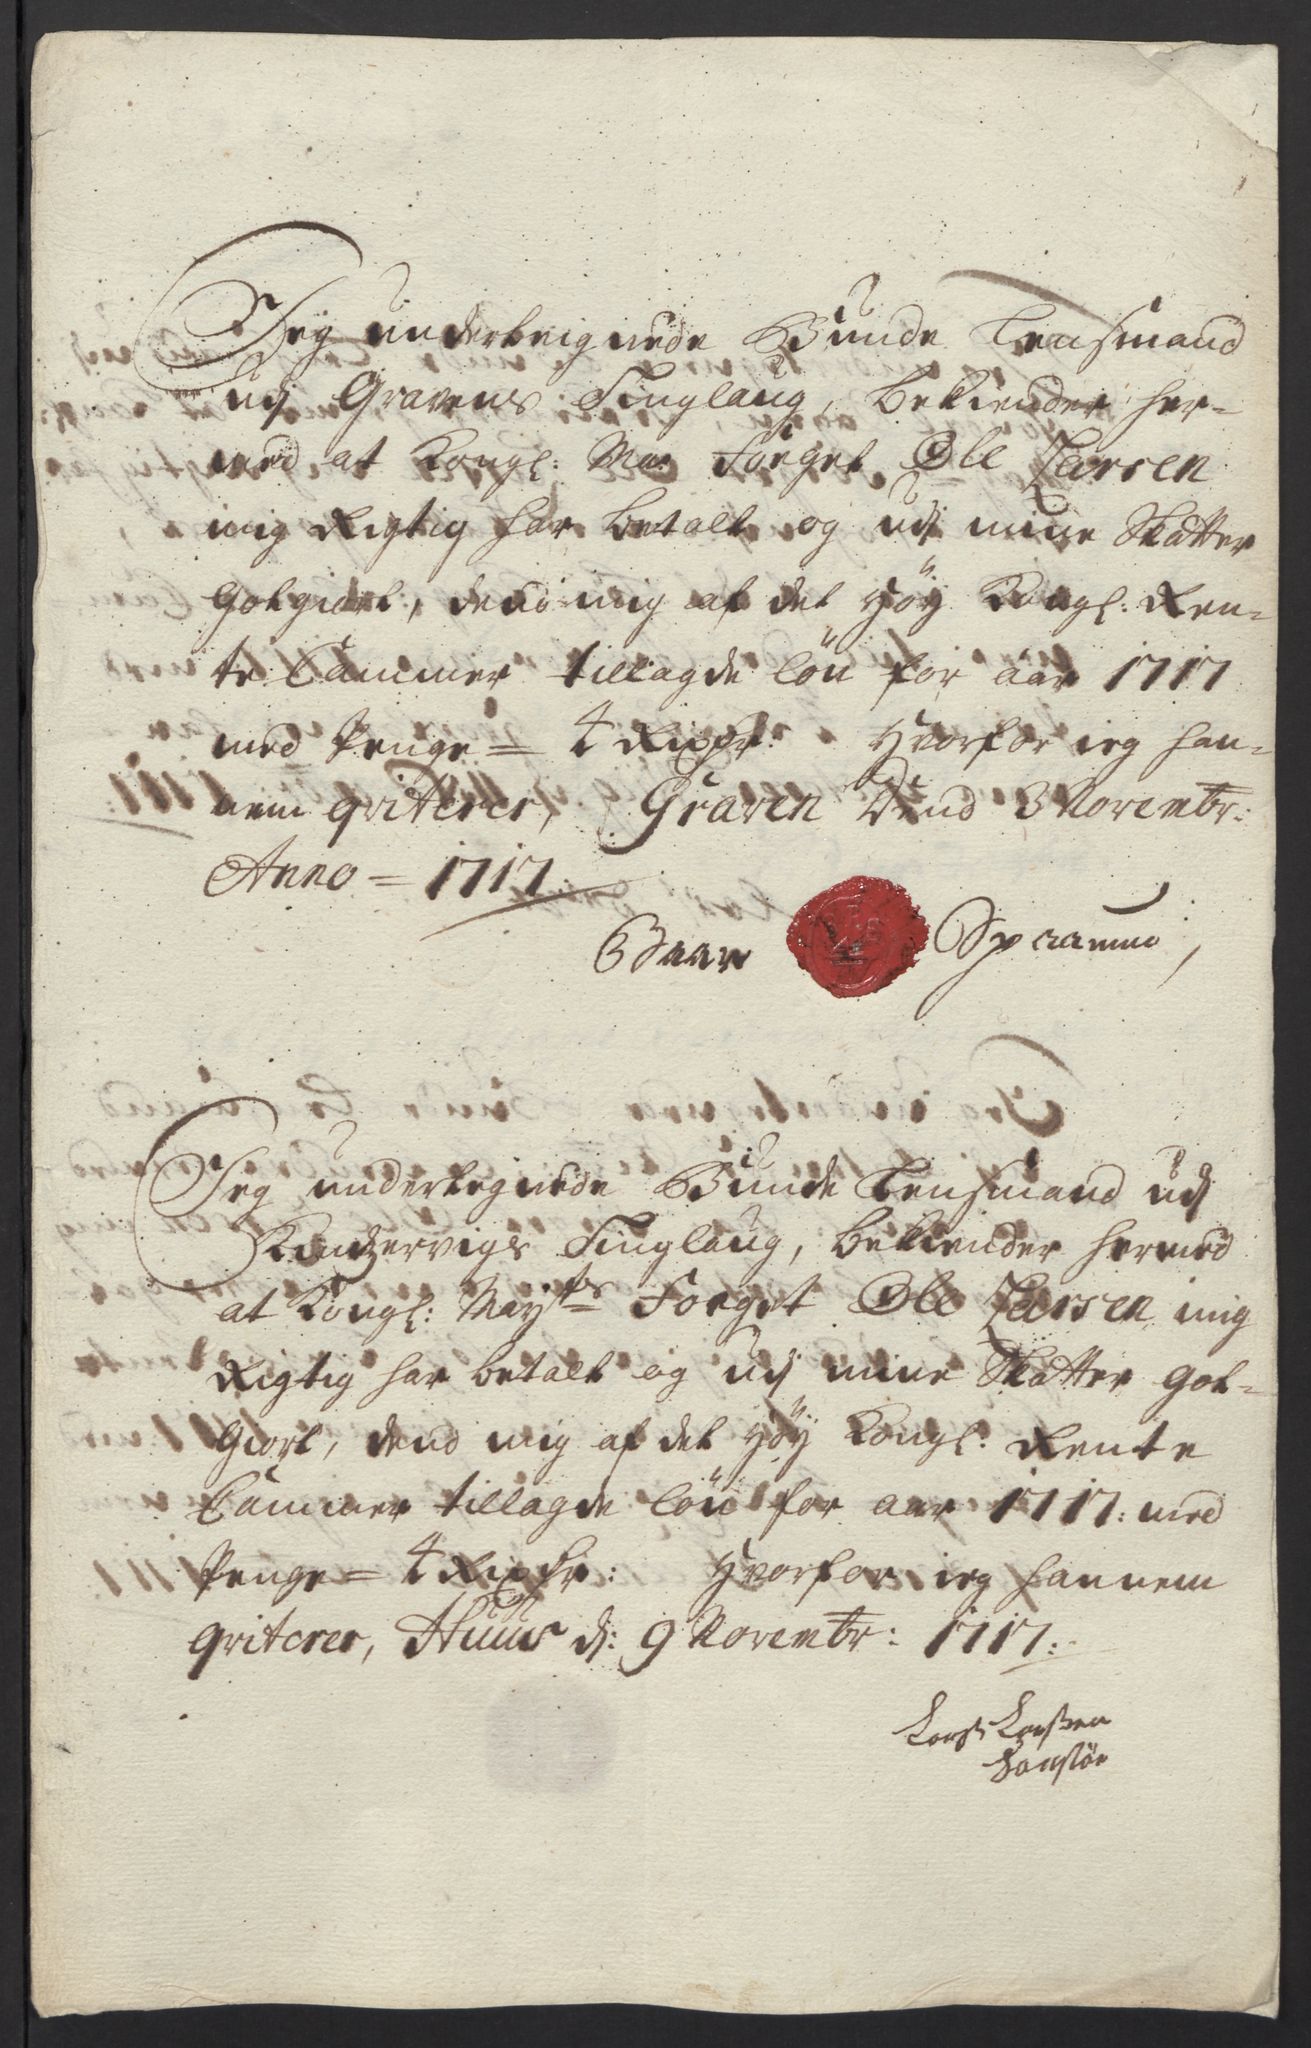 Jeg underteignede Bunde Lensmand
udj Gravens Tinglaug, bekiender her-
med at Kongl: Ma: Foeget Ole Larsen
mig Rigtig har betalt og udj mine Skatter
Gotgiort, dend mig af det Höÿ Kongl: Ren-
te Cammer tillagde lön for aar 1717
med Penge = 4 Rixdr: Hvorfor ieg han-
nem qviterer, Graven Dend 3 Novembr:
Anno = 1717.
Baar
Jeg underteignede Bunde Lensmand udj
Kindzervigs Tinglaug, bekiender hermed
at Kongl: Mayts Foeget Ole Larsen mig
Rigtig har betalt og udj mine Skatter Got-
Giort, dend mig af det Höÿ Kongl: Rente
Cammer tillagde lön for aar 1717: med
Penge = 4 Rixdr: Hvorfor ieg hannem
qviterer, Huus d: 9 Novembr: 1717:
Lars Larsen